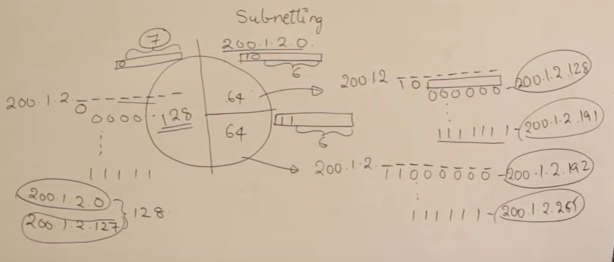 Subnetting
7
0
200.1.2.0
10
6
200.1.2.
0
0000
128
64
64
11
6
11111
200.1.2.0
200.1.2.127
128
200 12
10
000000
200.1.2.128
111111
200.1.2.191
200.1.2.
11000000
200.1.2.192
111111
200.1.2.255